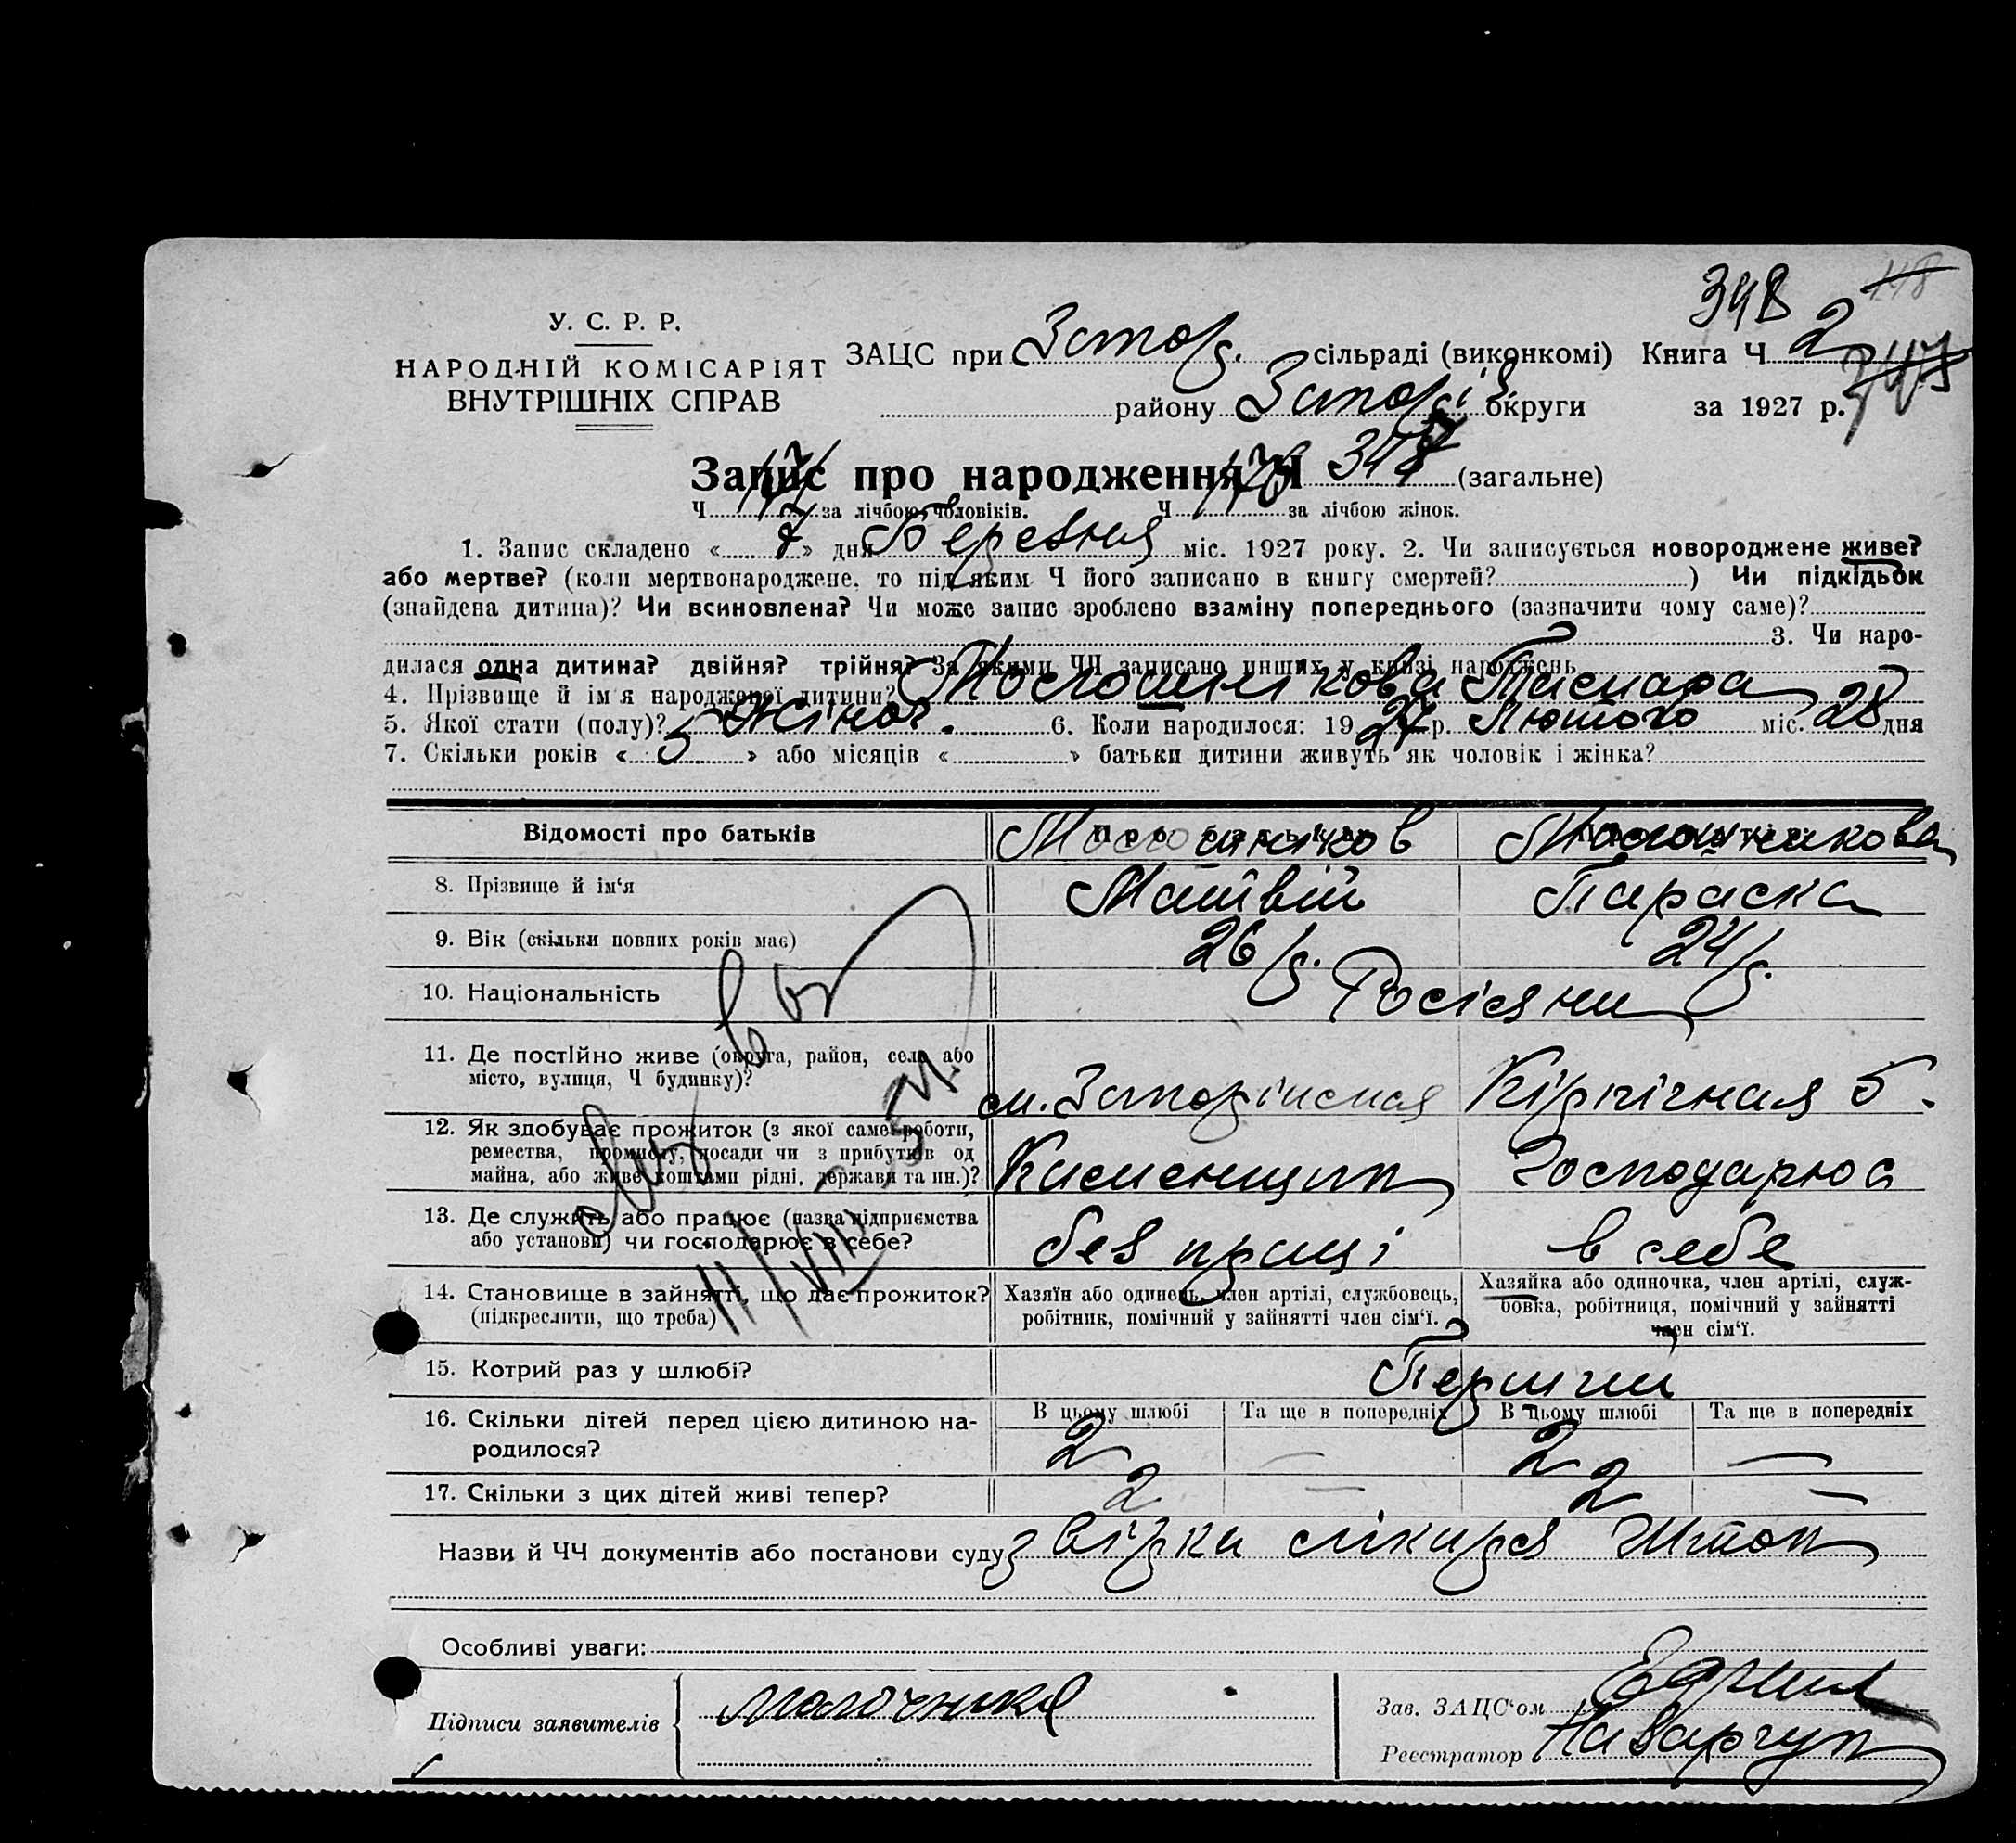 348
У. С. Р. Р.
НАРОДНІЙ КОМІСАРІЯТ
ВНУТРІШНІХ СПРАВ
ЗАЦС при Запор. сільраді (виконкомі) Книга Ч 2
району Запоріз. округи за 1927 р.
Запис про народження Ч 348 (загальне)
Ч за лічбою чоловіків. Ч за лічбою жінок.
1. Запис складено «7» дня Березня міс. 1927 року. 2. Чи записується новороджене живе?
або мертве? (коли мертвонароджене, то під яким Ч його записано в книгу смертей?) Чи підкідьок
(знайдена дитина)? Чи всиновлена? Чи може запис зроблено взаміну попереднього (зазначити чому саме)?
3. Чи наро-
дилася одна дитина? двійня? трійня? За якими ЧЧ записано инших у книзі народжень
4. Прізвище й ім'я народженої дитини? Молошнікова Тамара
5. Якої стати (полу)? Жіноч. 6. Коли народилося: 1927 р. Лютого міс. 28 дня
7. Скільки років «5» або місяців « » батьки дитини живуть як чоловік і жінка?
Відомості про батьків Молошніков Молошникова
8. Прізвище й ім'я Матвій Параска
9. Вік (скільки повних років має) 26 р. 24 р.
10. Національність Росіяни
11. Де постійно живе (округа, район, село або
місто, вулиця, Ч будинку)? м. Запоріжжя Кірпічная 5.
12. Як здобуває прожиток (з якої саме роботи,
ремества, промислу, посади чи з прибутків од
майна, або живе коштами рідні, держави та ин.)? Каменщик Господарюа
13. Де служить або працює (назва підприємства
або установи) чи господарює в себе? без праці в себе
14. Становище в зайнятті, що дає прожиток?
(підкреслити, що треба)
Хазяїн або одинець, член артілі, службовець,
робітник, помічний у зайнятті член сім'ї.
Хазяйка або одиночка, член артілі, служ-
бовка, робітниця, помічний у зайнятті
член сім'ї.
15. Котрий раз у шлюбі? Перший
16. Скільки дітей перед цією дитиною на-
родилося?
В цьому шлюбі Та ще в попередніх В цьому шлюбі Та ще в попередніх
2 — 2 —
17. Скільки з цих дітей живі тепер? 2 — 2 —
Назви й ЧЧ документів або постанови суду
Особливі уваги:
Підписи заявителів
Зав. ЗАЦС'ом
Реєстратор
11/VIII 34.